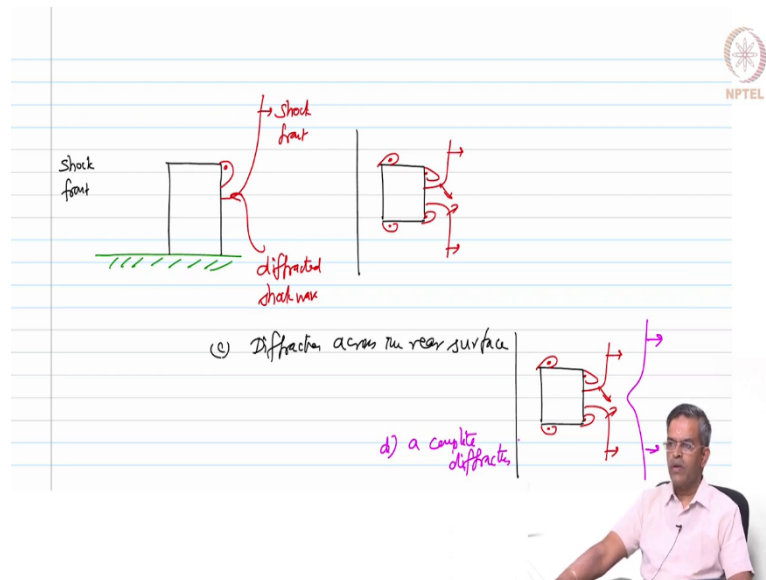 NPTEL
shock
front
shock
front
diffracted
shock wave
(c) Diffraction across the rear surface
d) a complete
diffraction